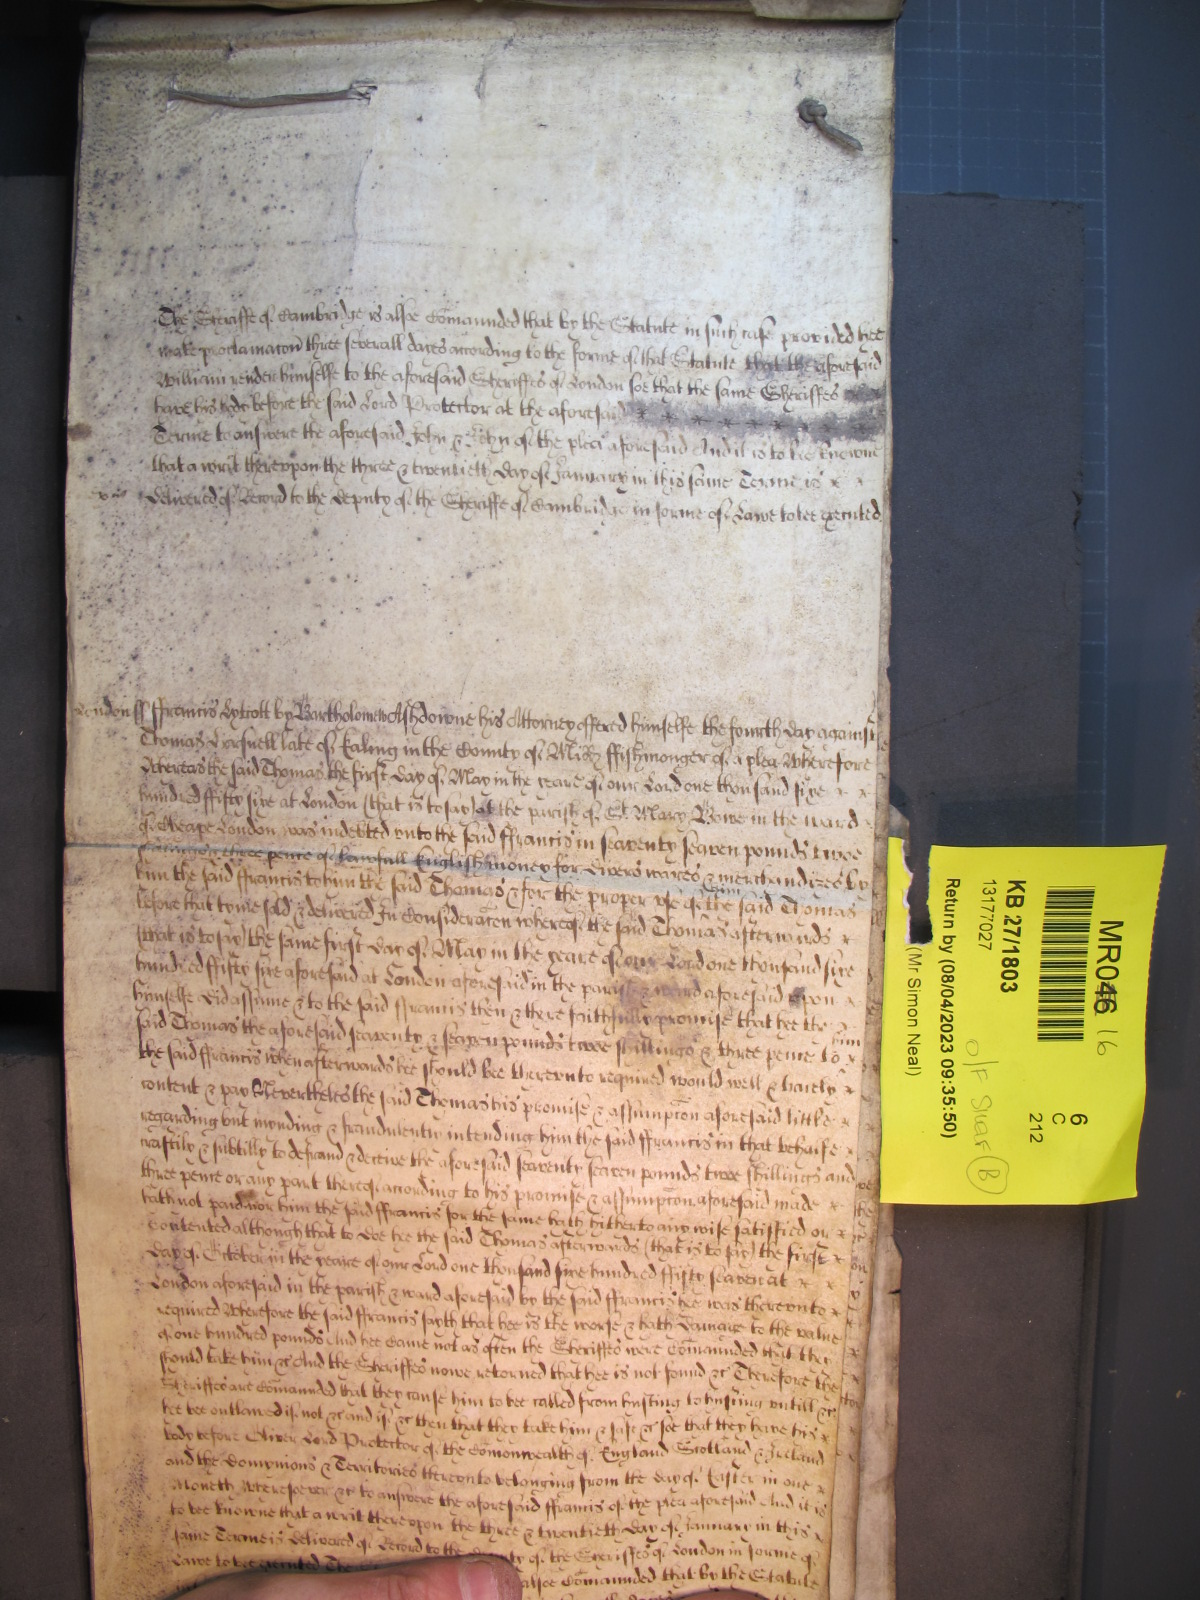 The Sheriffe of Cambridge is alsoe Comaunded that by the Statute in such case provided hee
make proclamacon three severall dayes according to the forme of that Statute that the aforesaid
William render himselfe to the aforesaid Sheriffes of London soe that the same Sheriffes
have his body before the said Lord Protector at the aforesaid
Terme to answere the aforesaid John & John of the plea aforesaid And it is to bee knowne
that a writt thereupon the three & twentieth day of January in this same Terme is
delivered of Record to the deputy of the Sheriffe of Cambridge in forme of Lawe to bee executed
London ss ffrancis Lycott by Bartholomew Ashdowne his Attorney offered himselfe the fourth day against
Thomas late of Ealing in the County of Midd ffishmonger of a plea Wherefore
Whereas the said Thomas the first day of May in the yeare of our Lord one thousand sixe
hundred ffifty sixe at London (that is to say) at the parish of St. Mary Bowe in the ward
of Cheape London was indebted unto the said ffrancis in seaventy seaven pounds twoe
shillings & three pence of lawfull English money for divers wares & merchandizes by
him the said ffrancis to him the said Thomas & for the proper use of him the said Thomas
before that tyme sold & delivered In Consideracon whereof the said Thomas afterwards
(that is to say) the same first day of May in the yeare of our Lord one thousand sixe
hundred ffifty sixe aforesaid at London aforesaid in the parish & ward aforesaid upon
himselfe did assume & to the said ffrancis then & there faithfully promise that hee the
said Thomas the aforesaid seaventy & seaven pounds twoe shillings & three pence to him
the said ffrancis when afterwards hee should bee thereunto required would well & truely
content & pay Neverthelesse the said Thomas his promise & assumpcon aforesaid little
regarding but mynding & fraudulently intending him the said ffrancis in that behalfe
craftily & subtilly to defraud & deceive the aforesaid seaventy seaven pounds twoe shillings and
three pence or any part thereof according to his promise & assumpcon aforesaid made
hath not paid nor him the said ffrancis for the same hath hitherto any wise satisfied or
Contented although that to doe hee the said Thomas afterwards (that is to say) the first
day of October in the yeare of our Lord one thousand sixe hundred ffifty seaven at
London aforesaid in the parish & ward aforesaid by the said ffrancis hee was thereunto
required Wherefore the said ffrancis sayth that hee is the worse & hath damage to the value
of one hundred pounds And hee Came not as often the Sheriffes were Comaunded that they
should take him &c And the Sheriffes nowe returned that hee is not found &c Therefore the
Sheriffes are Comaunded that they cause him to bee called from husting to husting untill &c
hee bee outlawed if not &c and if &c then that they take him & safe &c soe that they have his
body before Oliver Lord Protector of the Comonwealth of England Scotland & Ireland
and the Dominyons & Territories thereunto belonging from the day of Easter in one
Moneth Wheresoever &c to answere the aforesaid ffrancis of the plea aforesaid And it is
to bee knowne that a writt thereupon the three & twentieth day of January in this
same Terme is delivered of Record to the deputy of the Sheriffes of London in forme of
Lawe to bee executed The alsoe Comaunded that by the Statute
MR046 16
KB 27/1803
13177027
Return by (08/04/2023 09:35:50)
(Mr Simon Neal)
6
C
212
O/F Shelf B